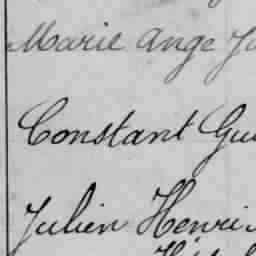 Marie Ange
Constant
Julien Henri